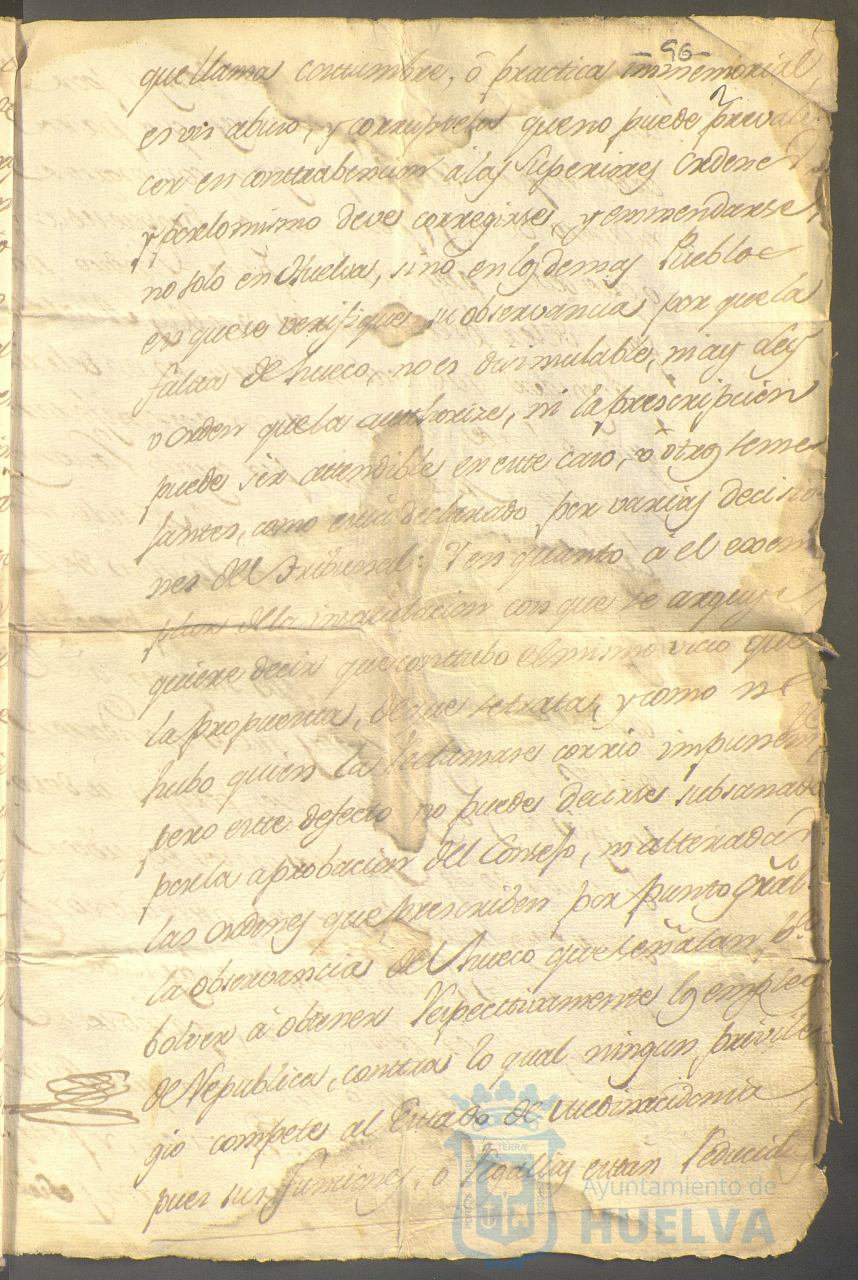 -96-
que llama costumbre, ó practica inmemorial,
es un abuso, y corruptela que no puede preval
cer en contrabencion á las Superiores Ordene
y por lo mismo deve corregirse, y enmendarse,
no solo en Huelva, sino en los demas Pueblos
en que se verifique su observancia por que la
falta de hueco, no es disimulable, ni ay Ley
o orden que la authorize, ni la prescripcion
puede ser attendible en este caso, ó otros seme
jantes, como está declarado por varias decisio
nes del Tribunal: Y en quanto á el exem
plar de la insaculacion con que se arguye,
quiere decir que contubo el mismo vicio que
la propuesta, de que se trata, y como no
hubo quien la reclamase corrió impunem.te
pero este defecto no puede decirse subsanado
por la aprobacion del Consejo, ni alteradas
las ordenes que prescriben por punto gral
la observancia del hueco que señalan p.a
bolver á obtener respectivamente los empleos
de Republica, contra lo qual ningun privile
gio compete al Estado de Medinasidonia,
pues sus funciones, o Regalias estan reducid
Ayuntamiento de
HUELVA